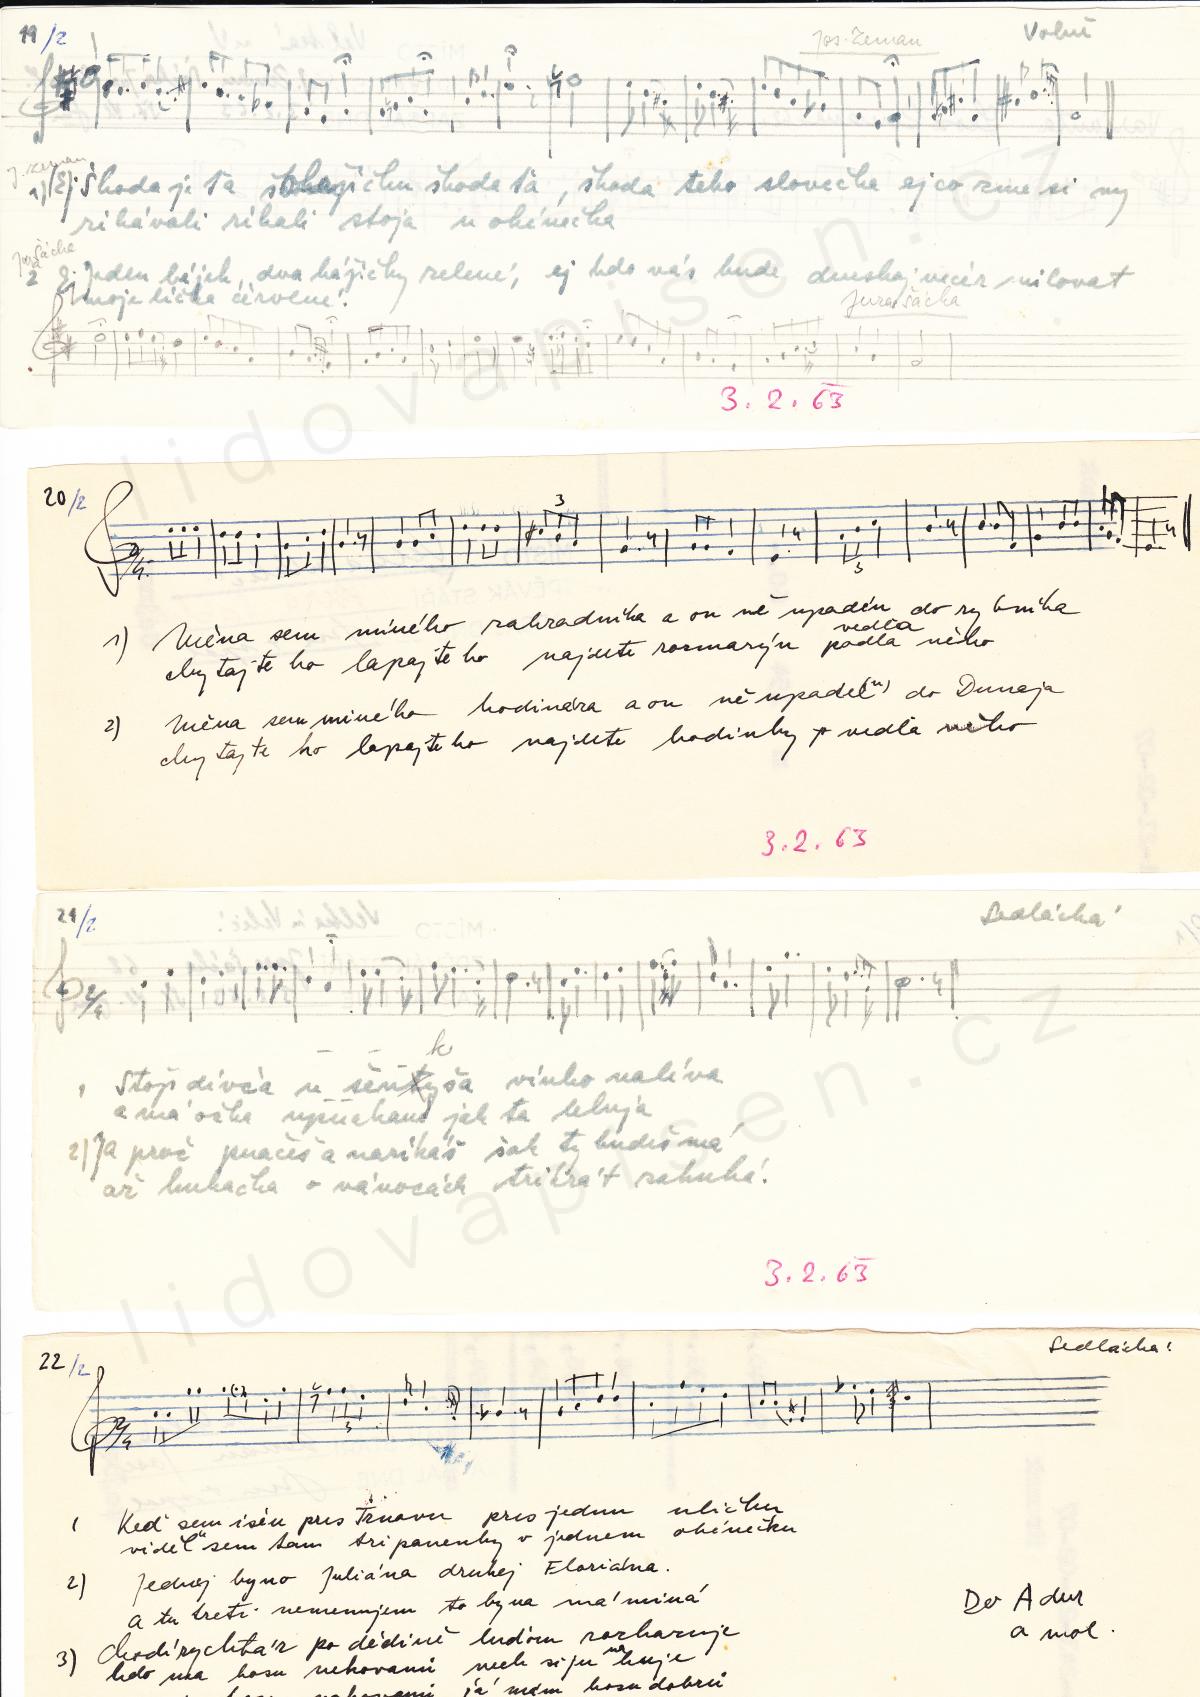 19/2
Jos. Zeman
Volně
J. Zeman
1) (Ej) Škoda je ťa škoda ťa, škoda teho slovečka ej co zme si my
rikávali rikali stoja u okénečka
Jos. Šácha
2 Ej Jeden hájek, dva hájíčky zelené, ej kdo vás bude dneskaj večér milovat
moje líčka červené.
Jura Šácha
3.2.63
20/2
3
3
1) Měna sem miného zahradníka a on ně upadén do rybníka
vedla
chytajte ho lapajte ho najdete rozmarýn podla ného
2) Měna sem miného hodinára a on ně upadél(n) do Dunaja
chytajte ho lapajte ho najdete hodinky vedla ného
3.2.63
21/2
Sedlácká
2/4
k
1 Stojí dívča u šenkýša vínko nalívá
a má očka upuakané jak ta leluja
2) Ja proč puačéš a naríkáš šak ty budeš má
až kukačka o vánocách trikrát zakuká.
3.2.63
22/2
Sedlácká
2/4
3
1 Keď sem išén pres Trnavu pres jednu uličku
viděl sem tam tri panenky v jednem okénečku
2) Jednej byno Juliána druhej Floriána.
a tu tretí nemenujem to byna má miná
Do A dur
a mol.
3) Chodí rychtár po dědině luďom rozkazuje
kdo má kosu nekovanú nech si ju nakuje
kosu dobrú
lidovapisen.cz
lidovapisen.cz